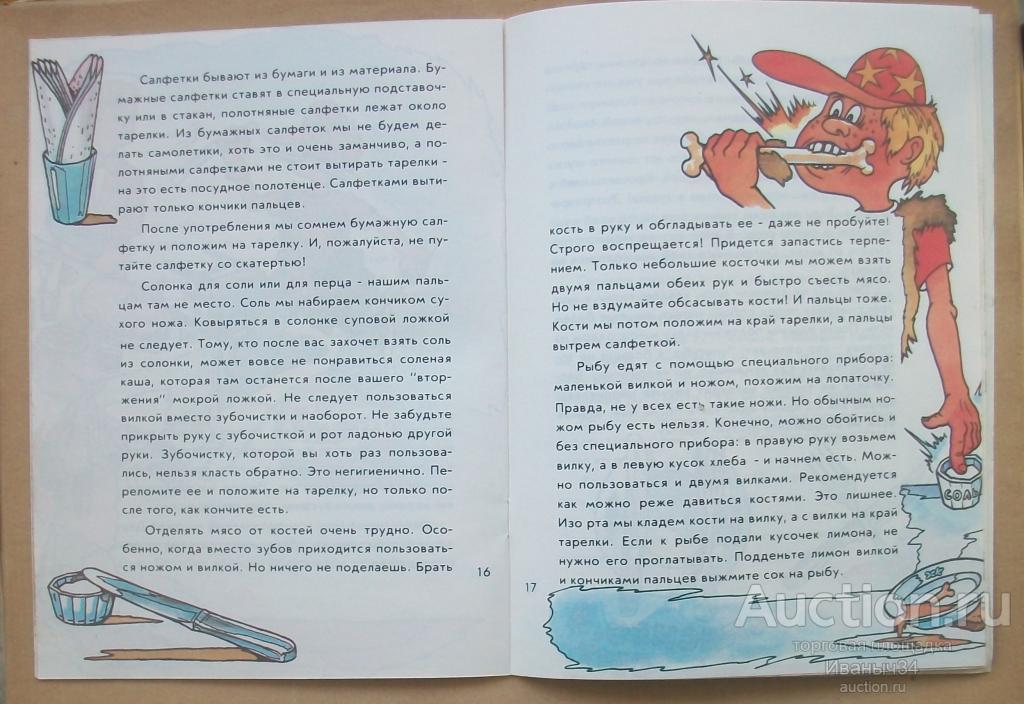 Салфетки бывают из бумаги и из материала. Бу-
мажные салфетки ставят в специальную подставоч-
ку или в стакан, полотняные салфетки лежат около
тарелки. Из бумажных салфеток мы не будем де-
лать самолетики, хоть это и очень заманчиво, а по-
лотняными салфетками не стоит вытирать тарелки -
на это есть посудное полотенце. Салфетками выти-
рают только кончики пальцев.
После употребления мы сомнем бумажную сал-
фетку и положим на тарелку. И, пожалуйста, не пу-
тайте салфетку со скатертью!
Солонка для соли или для перца - нашим паль-
цам там не место. Соль мы набираем кончиком су-
хого ножа. Ковыряться в солонке суповой ложкой
не следует. Тому, кто после вас захочет взять соль
из солонки, может вовсе не понравиться соленая
каша, которая там останется после вашего "втор-
жения" мокрой ложкой. Не следует пользоваться
вилкой вместо зубочистки и наоборот. Не забудьте
прикрыть руку с зубочисткой и рот ладонью другой
руки. Зубочистку, которой вы хоть раз пользова-
лись, нельзя класть обратно. Это негигиенично. Пе-
реломите ее и положите на тарелку, но только по-
сле того, как кончите есть.
Отделять мясо от костей очень трудно. Осо-
бенно, когда вместо зубов приходится пользовать-
ся ножом и вилкой. Но ничего не поделаешь. Брать
16
кость в руку и обгладывать ее - даже не пробуйте!
Строго воспрещается! Придется запастись терпе-
нием. Только небольшие косточки мы можем взять
двумя пальцами обеих рук и быстро съесть мясо.
Но не вздумайте обсасывать кости! И пальцы тоже.
Кости мы потом положим на край тарелки, а пальцы
вытрем салфеткой.
Рыбу едят с помощью специального прибора:
маленькой вилкой и ножом, похожим на лопаточку.
Правда, не у всех есть такие ножи. Но обычным но-
жом рыбу есть нельзя. Конечно, можно обойтись и
без специального прибора: в правую руку возьмем
вилку, а в левую кусок хлеба - и начнем есть. Мож-
но пользоваться и двумя вилками. Рекомендуется
как можно реже давиться костями. Это лишнее.
Изо рта мы кладем кости на вилку, а с вилки на край
тарелки. Если к рыбе подали кусочек лимона, не
нужно его проглатывать. Подденьте лимон вилкой
и кончиками пальцев выжмите сок на рыбу.
17
СОЛЬ
Auction.ru
торговая площадка
Иваныч34
auction.ru